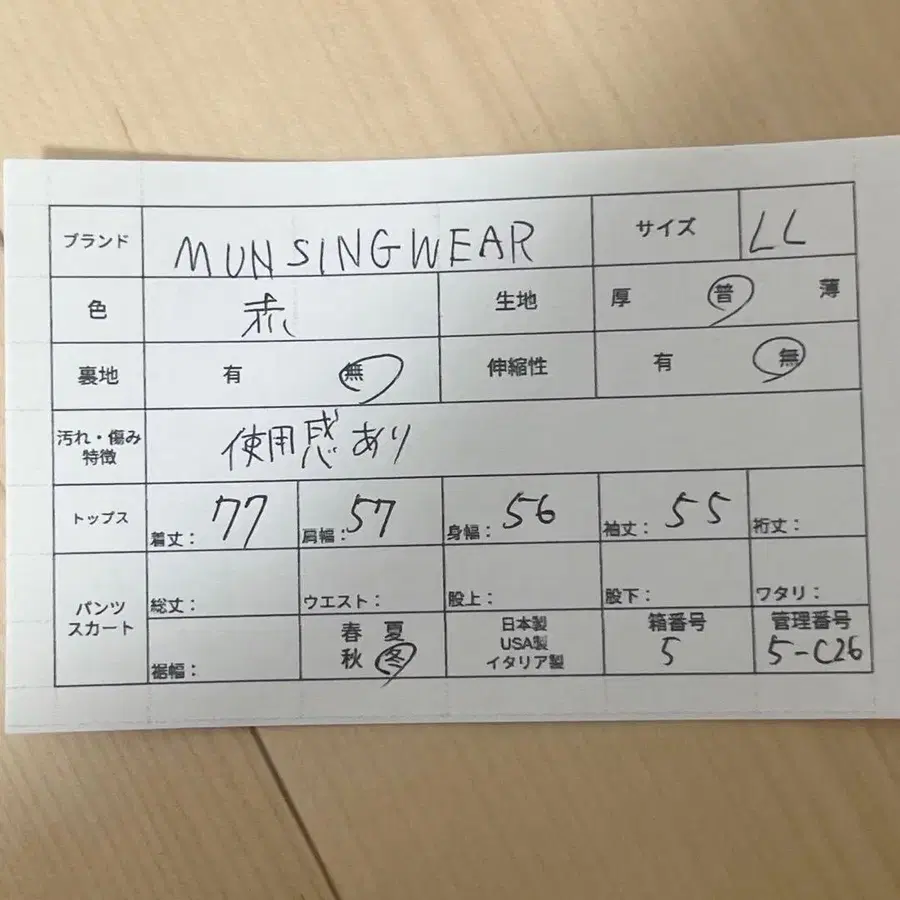 ブランド MUNSINGWEAR サイズ LL
色 赤 生地 厚 普 薄
裏地 有 無 伸縮性 有 無
汚れ・傷み
特徴 使用感あり
トップス 着丈: 77 肩幅: 57 身幅: 56 袖丈: 55 裄丈:
パンツ
スカート 総丈: ウエスト: 股上: 股下: ワタリ:
裾幅: 春 夏
秋 冬
日本製
USA製
イタリア製
箱番号
5
管理番号
5-C26